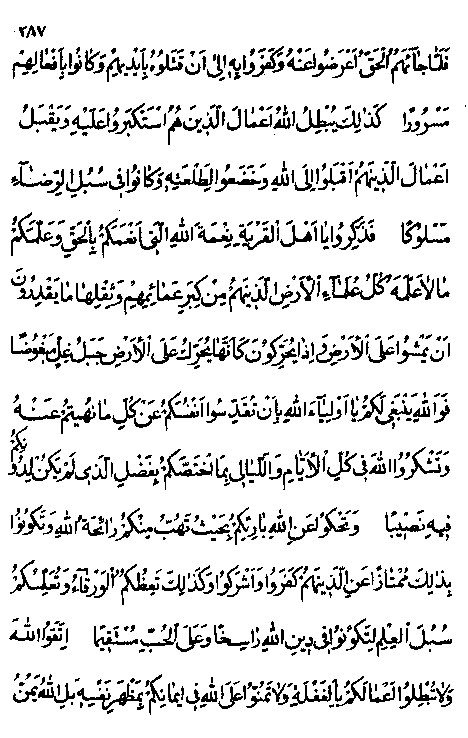 ٢٨٧
فلمّا جآئهم الحقّ اعرضوا عنه وكفروا به الى ان قتلوه بأيديهم وكانوا بافعالهم
مسرورًا كذلك يبطل الله اعمال الّذين هم استكبروا عليه ويقبل
اعمال الّذينهم اقبلوا الى الله وخضعوا لطلعته وكانوا فى سبل الرّضآء
مسلوكًا فذكّروا يا اهل القرية نعمة الله الّتى انعمكم بالحقّ وعلّمكم
ما لا علّمه كلّ علمآء الأرض الّذينهم من كبر عمائمهم وثقلها ما يقدرون
ان يمشوا على الأرض واذا يحرّكون كانّها يحرّك على الأرض جبل غلّ مبغوضًا
فوالله ينبغى لكم يا اوليآء الله بان تقدّسوا انفسكم عن كلّ ما نهيتم عنه
وتشكروا الله فى كلّ الأيّام واللّيالى بما اختصّكم بفضل الّذى لم يكن لدونكم
فيه نصيبًا وتحكوا عن الله بارئكم بحيث تهبّ منكم رائحة الله وتكونوا
بذلك ممتازًا عن الّذينهم كفروا واشركوا وكذلك تعظكم الورقآء وتعلّمكم
سبل العلم لتكونوا فى دين الله راسخًا وعلى الحبّ مستقيمًا اتّقوا الله
ولا تبطلوا اعمالكم بالغفلة ولا تمنّوا على الله فى ايمانكم بمظهر نفسه بل الله يمنّ